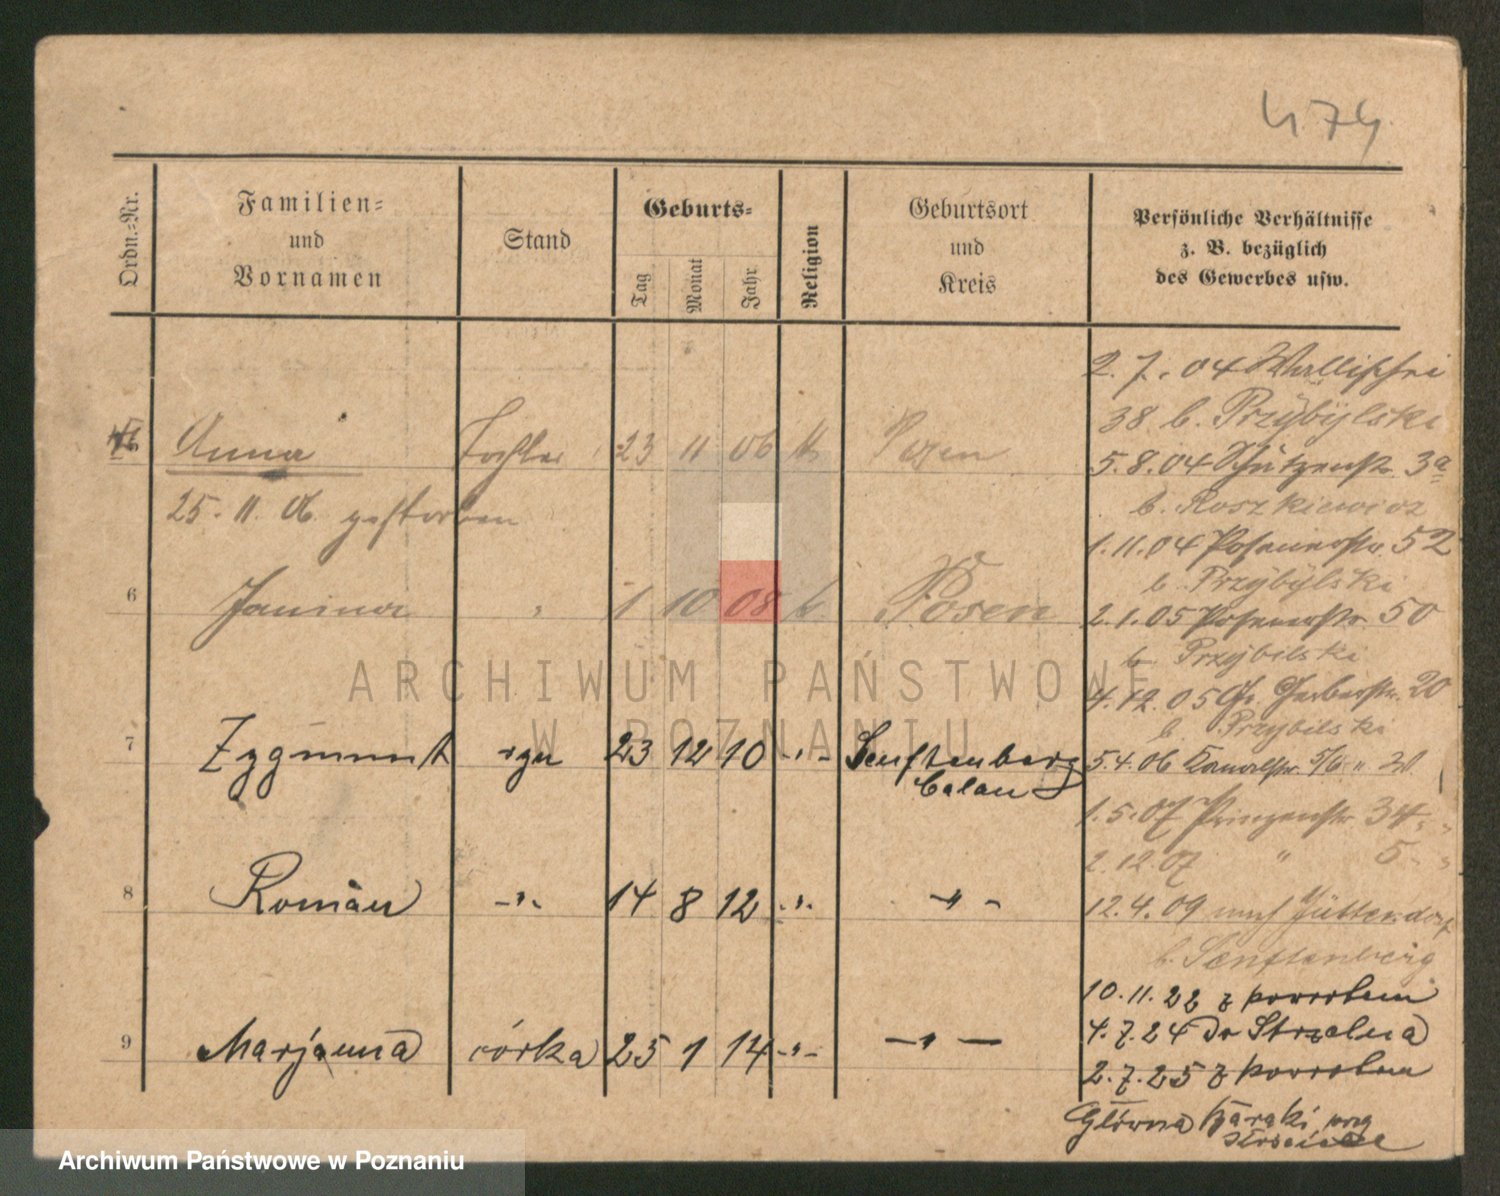 474
Ordn.-Nr.
Familien-
und
Vornamen
Stand
Geburts-
Tag
Monat
Jahr
Religion
Geburtsort
und
Kreis
Persönliche Verhältnisse
z. B. bezüglich
des Gewerbes usw.
5 Anna Tochter 23 11 06 k Posen
25. 11. 06 gestorben
6 Janina " 1 10 08 k Posen
7 Zygmunt syn 23 12 10 -"- Senftenberg
Calau
8 Roman -"- 14 8 12 -"- -"-
9 Marjanna córka 25 1 14 -"- -"-
2.7.04 Wallischei
38 b. Przybylski
5.8.04 Schützenstr. 3a
b. Roszkiewicz
1.11.04 Posenerstr. 52
b. Przybylski
2.1.05 Posenerstr. 50
b. Przybilski
4.12.05 Gr. Gerberstr. 20
b. Przybilski
5.4.06 Kanalstr. 5/6 "
1.5.07 Prinzenstr. 34 "
2.12.07 " 5 "
12.4.09 nach Hüttendorf
b. Senftenberg
10.11.22 z powrotem
4.7.24 do Strzelna
2.7.25 z powrotem
Główna baraki przy
ARCHIWUM PAŃSTWOWE
W POZNANIU
Archiwum Państwowe w Poznaniu